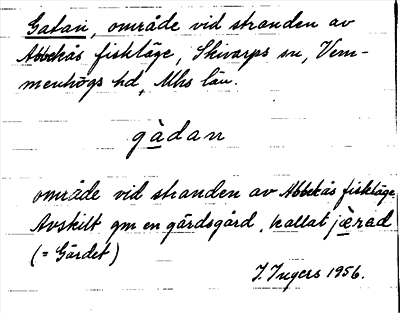 Gatan, område vid stranden av
Abbekås fiskläge, Skivarps sn, Vem-
menhögs hd, Mhs län.
gàdan
område vid stranden av Abbekås fiskläge.
Avskilt gm en gärdsgård, kallat jæ̀rad
(= Gärdet)
I. Ingers 1956.